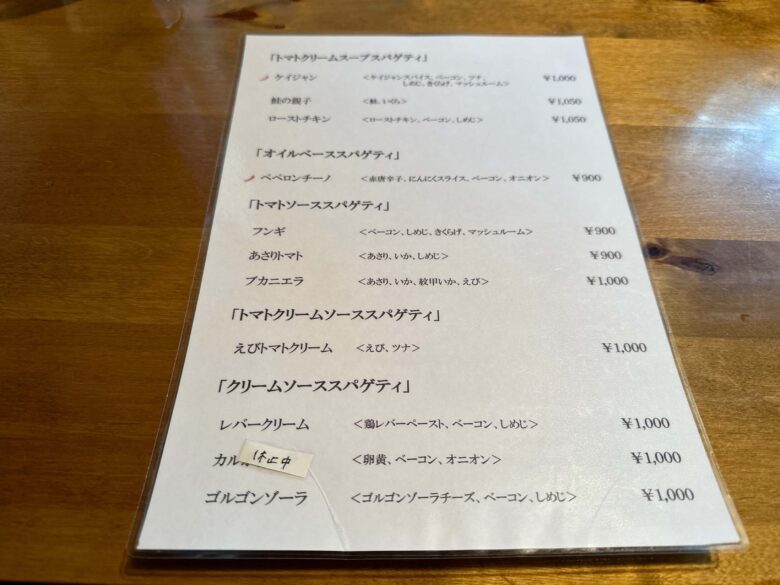 「トマトクリームスープスパゲティ」
ケイジャン <ケイジャンスパイス、ベーコン、ツナ、 ¥1,000
しめじ、きくらげ、マッシュルーム>
鮭の親子 <鮭、いくら> ¥1,050
ローストチキン <ローストチキン、ベーコン、しめじ> ¥1,050
「オイルベーススパゲティ」
ペペロンチーノ <赤唐辛子、にんにくスライス、ベーコン、オニオン> ¥900
「トマトソーススパゲティ」
フンギ <ベーコン、しめじ、きくらげ、マッシュルーム> ¥900
あさりトマト <あさり、いか、しめじ> ¥900
ブカニエラ <あさり、いか、紋甲いか、えび> ¥1,000
「トマトクリームソーススパゲティ」
えびトマトクリーム <えび、ツナ> ¥1,000
「クリームソーススパゲティ」
レバークリーム <鶏レバーペースト、ベーコン、しめじ> ¥1,000
カル 休止中 <卵黄、ベーコン、オニオン> ¥1,000
ゴルゴンゾーラ <ゴルゴンゾーラチーズ、ベーコン、しめじ> ¥1,000